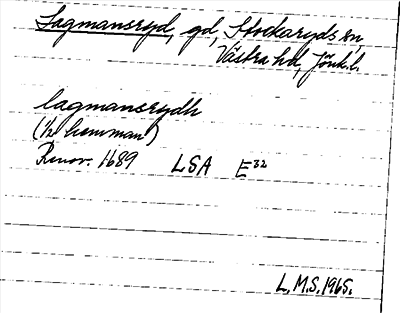 Lagmansryd, gd, Stockaryds sn,
Västra hd, Jönk.l.
lagmansrydh
(1/2 hemman)
Renov. 1689 LSA E32
L.M.S. 1965.